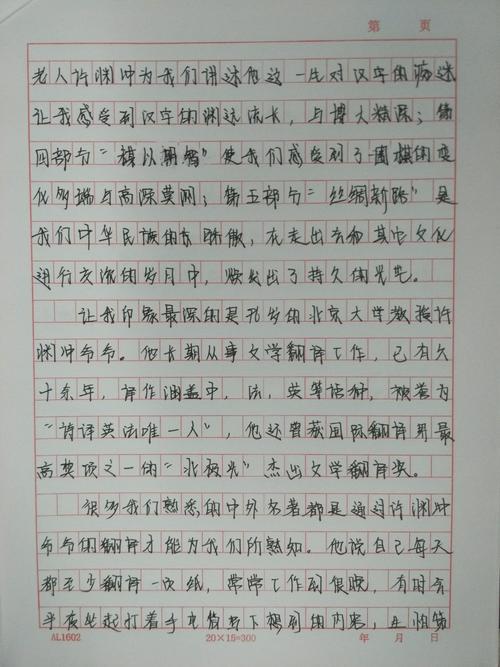 第 页
老人许渊冲为我们讲述他这一生对汉字的痴迷
让我感受到汉字的渊远流长,与博大精深;第
四部分“棋以明智”使我们感受到了围棋的变
化多端与高深莫测;第五部分“丝绸新路”是
我们中华民族的骄傲,在走出去和其它文化
进行交流的岁月中,焕发出了持久的光芒。
让我印象最深的是岁的北京大学教授许
渊冲爷爷。他长期从事文学翻译工作,已有六
十余年,译作涵盖中,法,英等语种,被誉为
“诗译英法唯一人”,他还曾获国际翻译界最
高奖项之一的“北极光”杰出文学翻译奖。
很多我们熟悉的中外名著都是通过许渊冲
爷爷的翻译才能为我们所熟知。他说自己每天
都至少翻译一页纸,常常工作到很晚,有时会
半夜坐起打着手电筒写下想到的内容,生怕第
AL1602 20×15=300 年 月 日